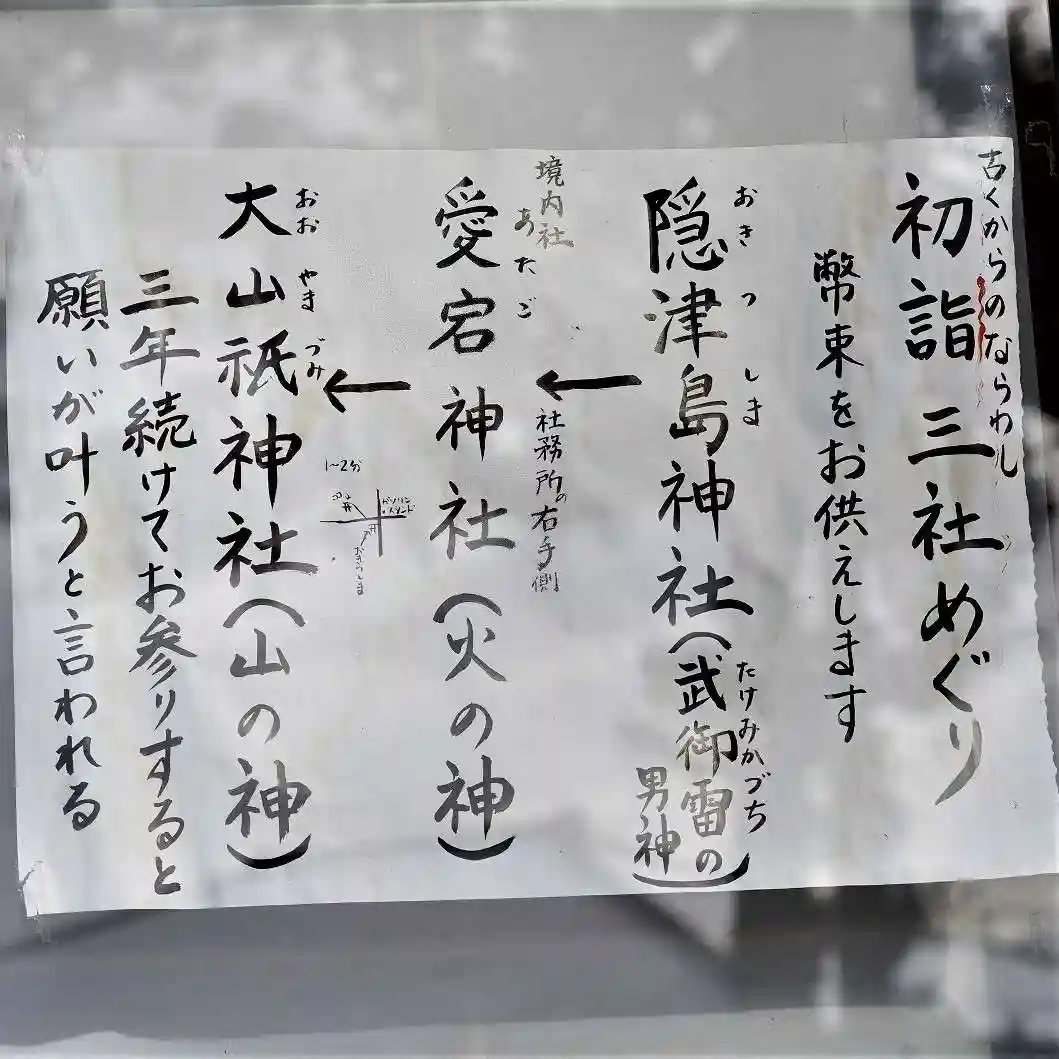 古くからのならわし
初詣三社めぐり
幣束をお供えします
おきつしま
隠津島神社(武御雷の
男神)
たけみかづち
←
境内社
社務所の右手側
あたご
愛宕神社(火の神)
←
1~2分
ガソリン
スタンド
おきつしま
おおやまづみ
大山祇神社(山の神)
三年続けてお参りすると
願いが叶うと言われる